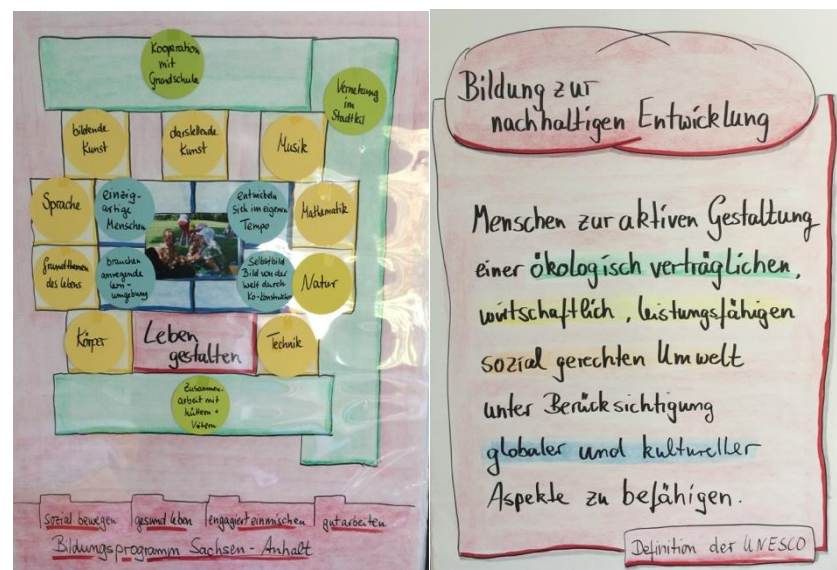 Kooperation
mit
Grundschule
Vernetzung
im
Stadtteil
bildende
Kunst
darstellende
Kunst
Musik
Sprache
einzig-
artige
Menschen
entwickeln
sich im eigenen
Tempo
Mathematik
Grundthemen
des Lebens
brauchen
anregende
Lern-
umgebung
Selbstbild
Bild von der
Welt durch
Ko-konstruktion
Natur
Körper
Leben
gestalten
Technik
Zusammen-
arbeit mit
Müttern +
Vätern
sozial bewegen
gesund leben
engagiert einmischen
gut arbeiten
Bildungsprogramm Sachsen-Anhalt
Bildung zur
nachhaltigen Entwicklung
Menschen zur aktiven Gestaltung
einer ökologisch verträglichen,
wirtschaftlich, leistungsfähigen
sozial gerechten Umwelt
unter Berücksichtigung
globaler und kultureller
Aspekte zu befähigen.
Definition der UNESCO